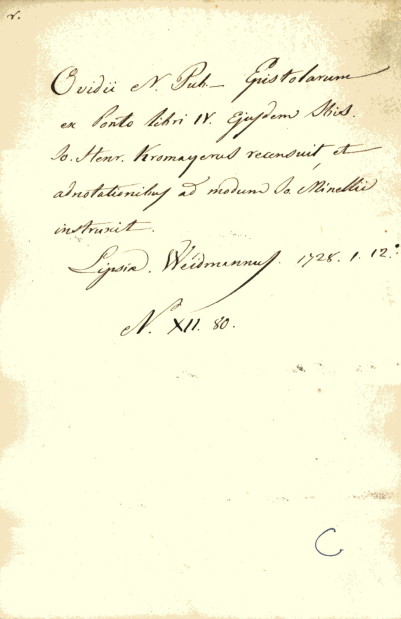 r.
Ovidii N. Pub. – Epistolarum
ex Ponto libri IV. Ejusdem Ibis.
Jo. Henr. Kromayerus recensuit, et
adnotationibus ad modum Jo. Minellii
instruxit.
Lipsiæ. Weidmannus. 1728. 1. 12.°
N. XII. 80.
C